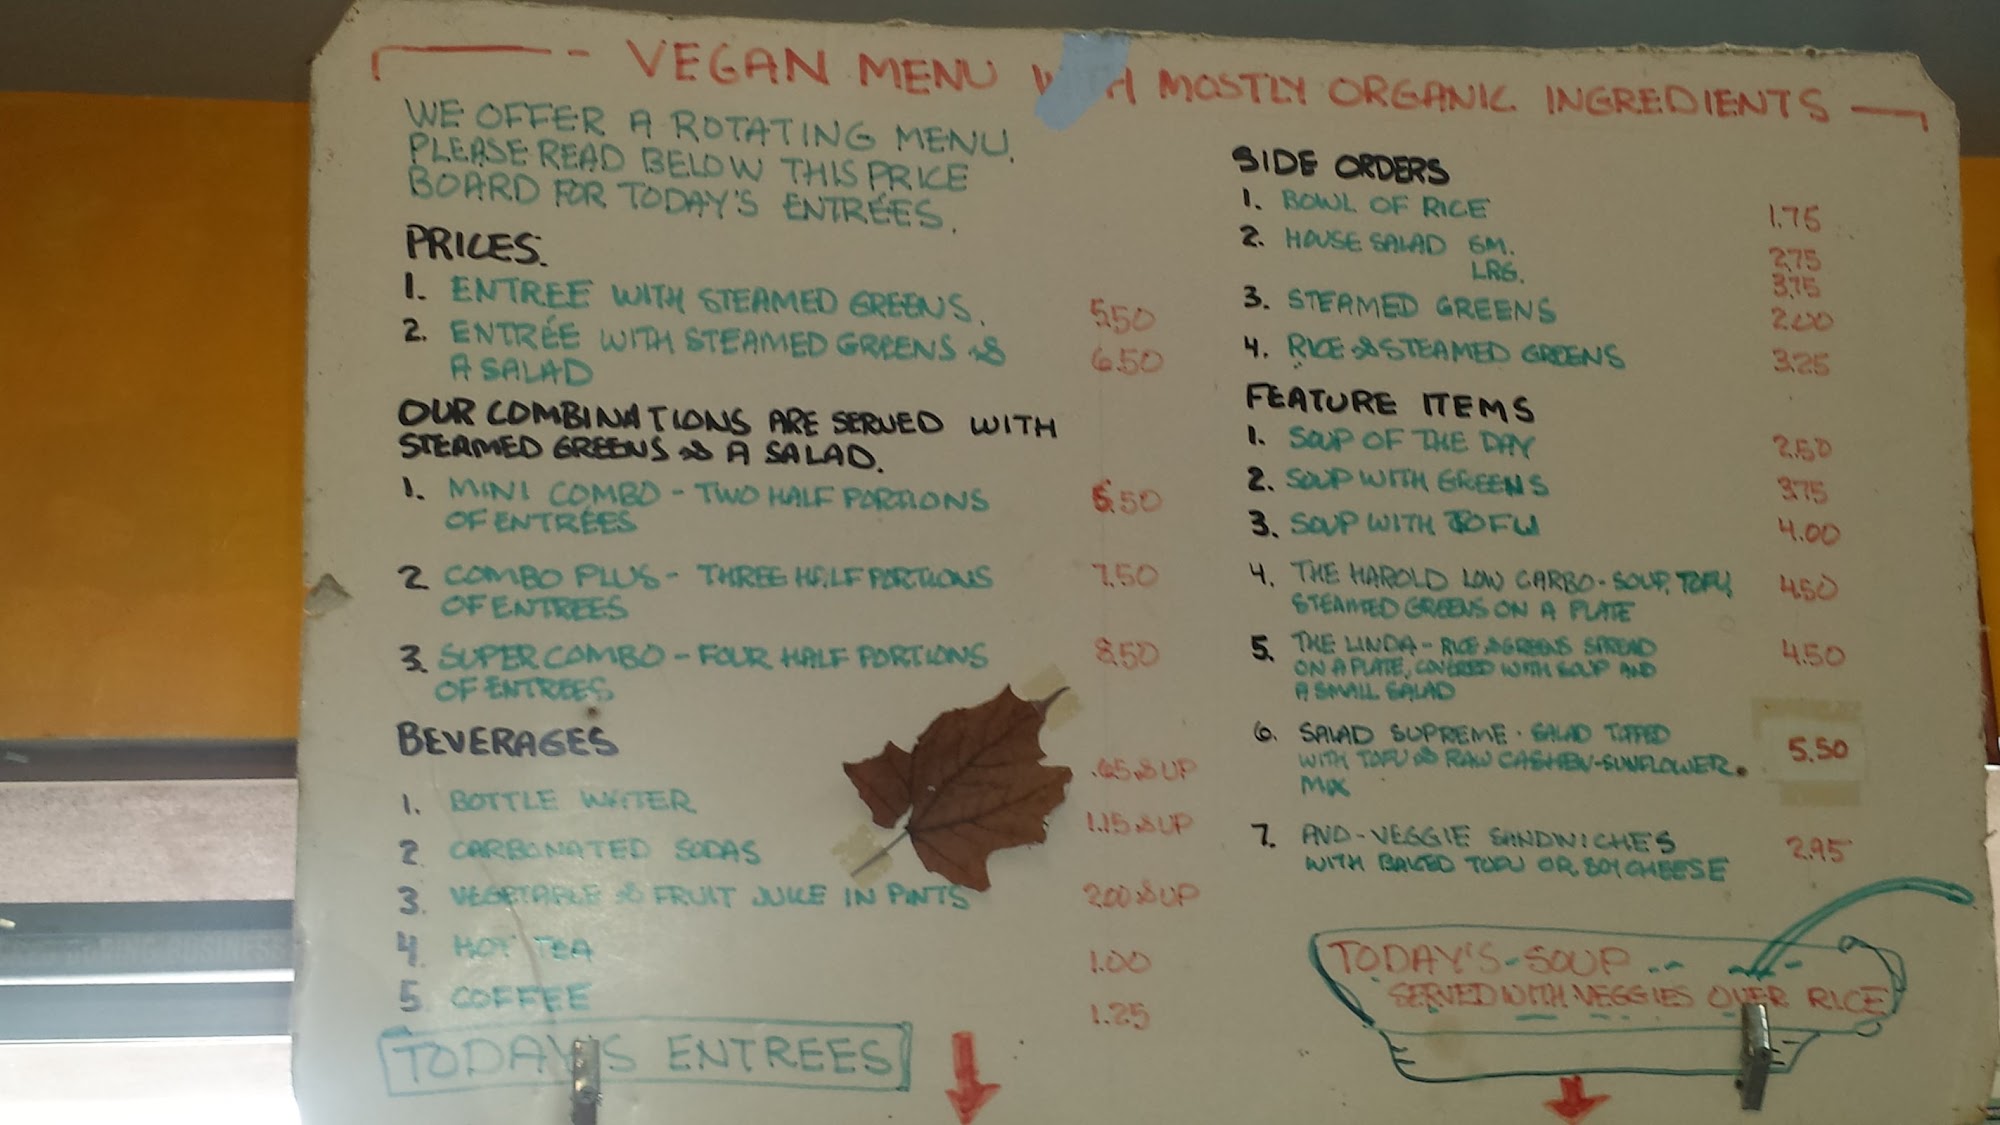 VEGAN MENU WITH MOSTLY ORGANIC INGREDIENTS
WE OFFER A ROTATING MENU.
PLEASE READ BELOW THIS PRICE
BOARD FOR TODAY'S ENTRÉES.
PRICES.
1. ENTREE WITH STEAMED GREENS. 5.50
2. ENTRÉE WITH STEAMED GREENS & 6.50
A SALAD
OUR COMBINATIONS ARE SERVED WITH
STEAMED GREENS & A SALAD.
1. MINI COMBO - TWO HALF PORTIONS 6.50
OF ENTRÉES
2 COMBO PLUS - THREE HALF PORTIONS 7.50
OF ENTREES
3. SUPER COMBO - FOUR HALF PORTIONS 8.50
OF ENTREES
BEVERAGES
1. BOTTLE WATER .65 & UP
2 CARBONATED SODAS 1.15 & UP
3. VEGETABLE & FRUIT JUICE IN PINTS 2.00 & UP
4 HOT TEA 1.00
5. COFFEE 1.25
TODAY'S ENTREES
SIDE ORDERS
1. BOWL OF RICE 1.75
2. HOUSE SALAD SM. 2.75
LRG. 3.75
3. STEAMED GREENS 2.00
4. RICE & STEAMED GREENS 3.25
FEATURE ITEMS
1. SOUP OF THE DAY 2.50
2. SOUP WITH GREENS 3.75
3. SOUP WITH TOFU 4.00
4. THE HAROLD LOW CARBO - SOUP, TOFU, 4.50
STEAMED GREENS ON A PLATE
5. THE LINDA - RICE & GREENS SPREAD 4.50
ON A PLATE, COVERED WITH SOUP AND
A SMALL SALAD
6. SALAD SUPREME - SALAD TOPPED 5.50
WITH TOFU & RAW CASHEW-SUNFLOWER
MIX
7. AVO-VEGGIE SANDWICHES 2.95
WITH BAKED TOFU OR SOY CHEESE
TODAY'S-SOUP
SERVED WITH VEGGIES OVER RICE